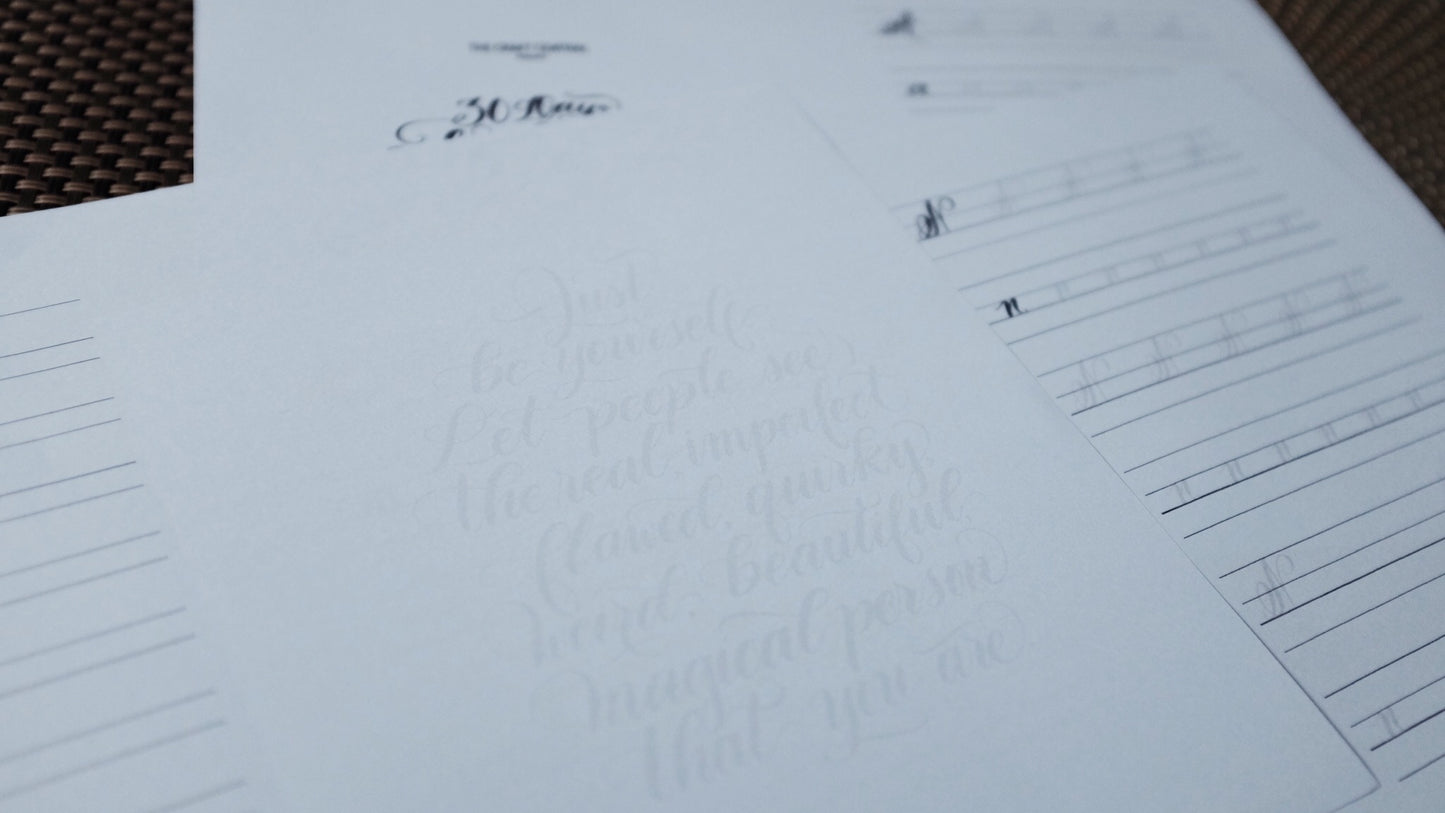 THE CRAFT CENTRAL
30 Days
Just
be yourself.
Let people see
the real, imperfect
flawed, quirky
weird, beautiful
magical person
that you are
a
N
n